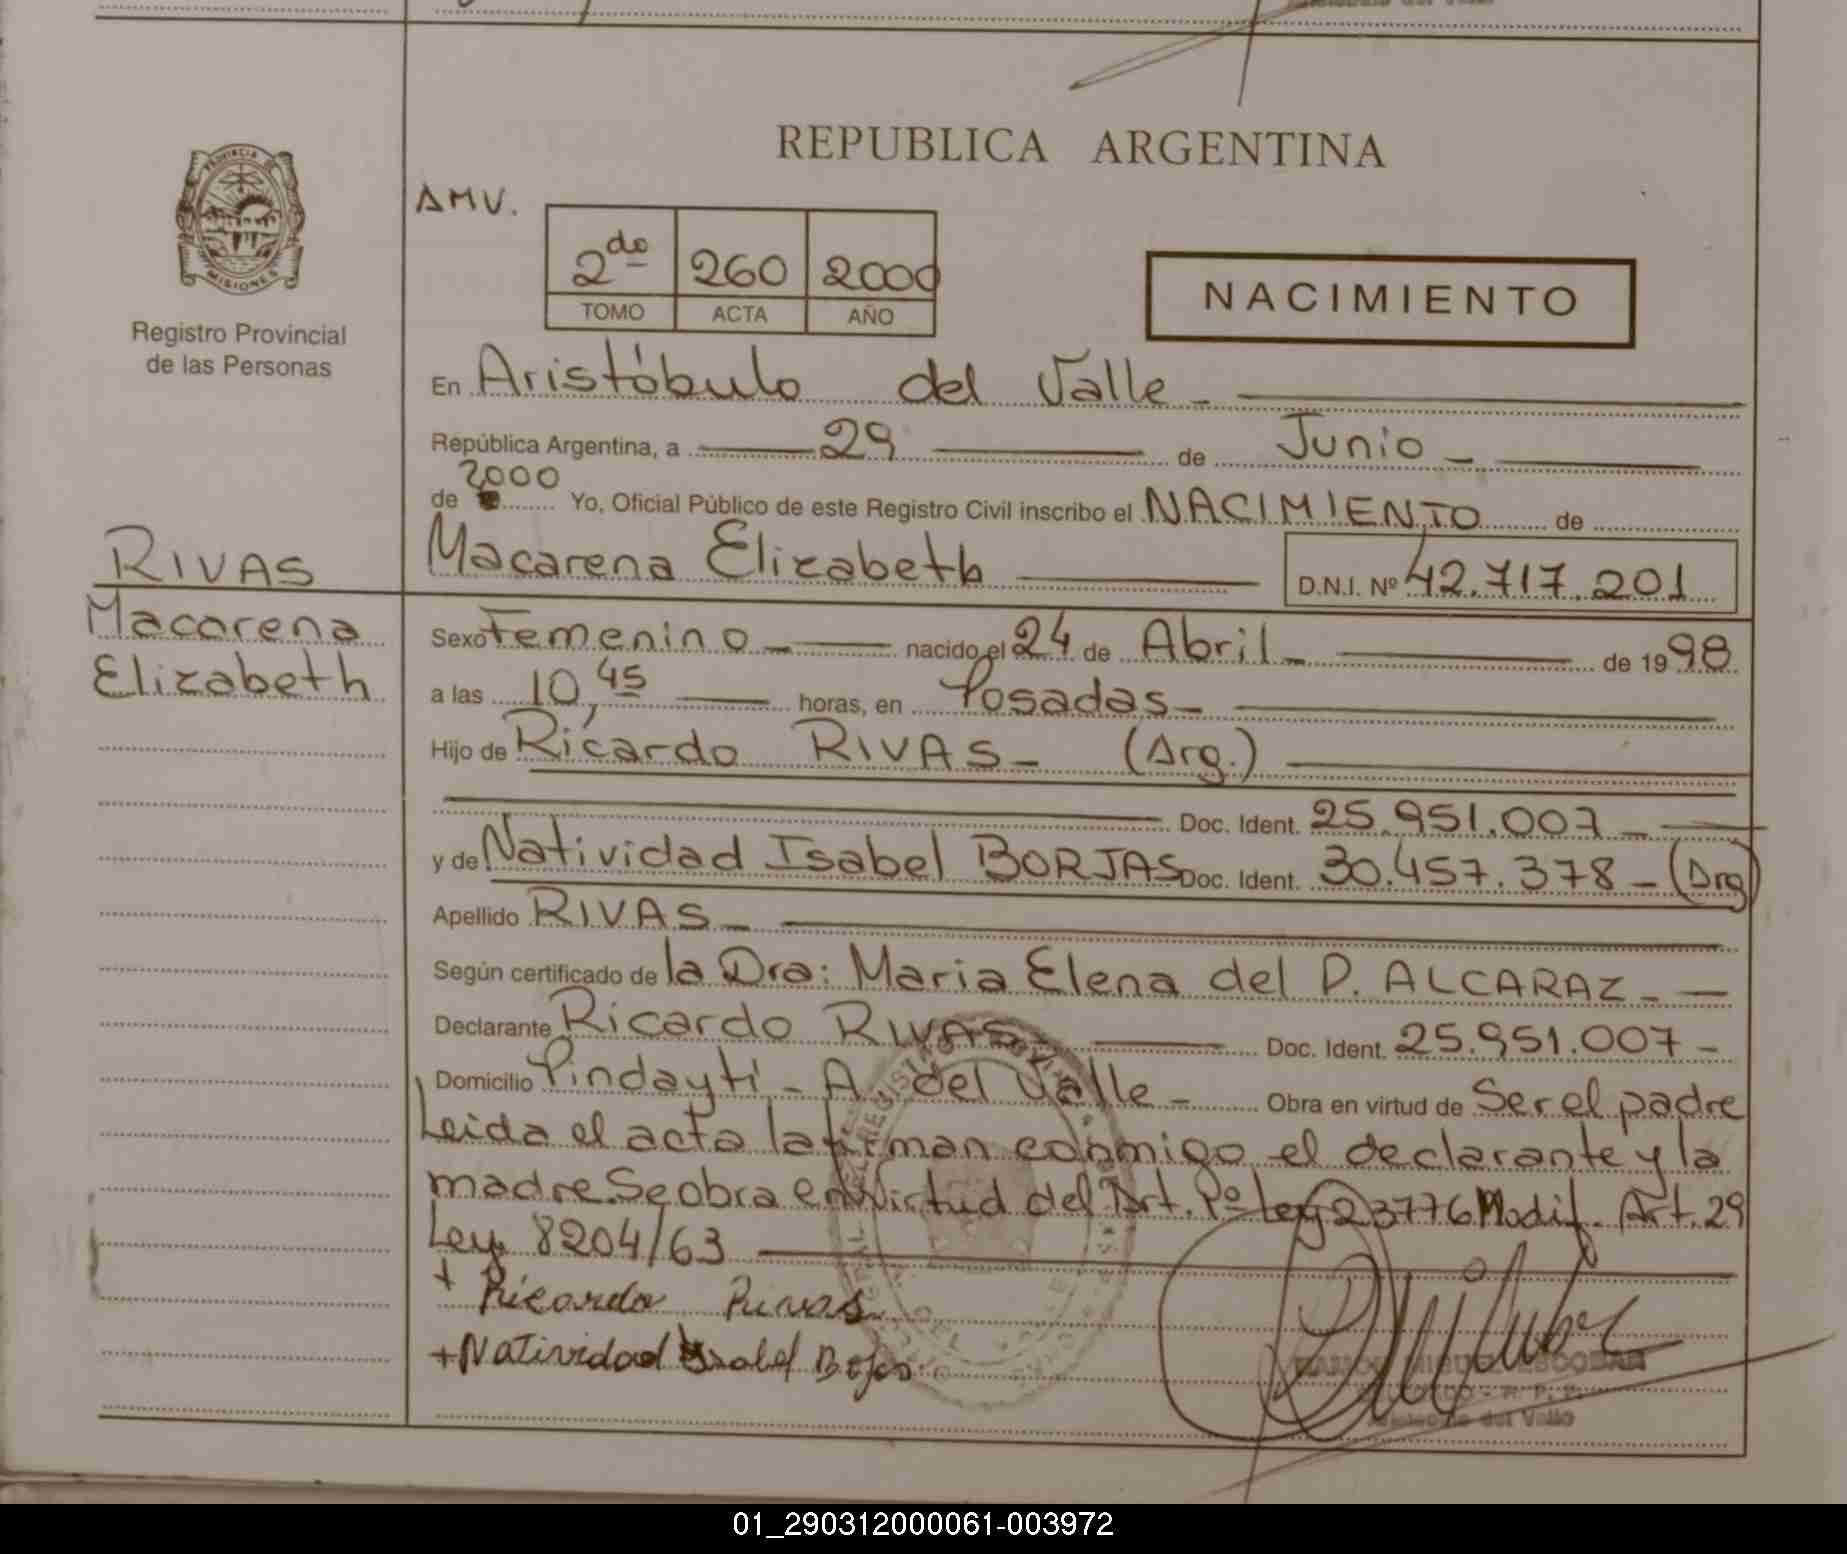 REPUBLICA ARGENTINA
PROVINCIA DE
MISIONES
Registro Provincial
de las Personas
AMV.
2do 260 2000
TOMO ACTA AÑO
NACIMIENTO
En Aristóbulo del Valle -
República Argentina, a 29 de Junio -
de 2000 Yo, Oficial Público de este Registro Civil inscribo el NACIMIENTO de
Macarena Elizabeth D.N.I. Nº 42.717.201
RIVAS
Macarena
Elizabeth
Sexo Femenino - nacido el 24 de Abril - de 1998
a las 10,45 horas, en Posadas -
Hijo de Ricardo RIVAS - (Arg.)
Doc. Ident. 25.951.007 -
y de Natividad Isabel BORJAS Doc. Ident. 30.457.378 - (Arg)
Apellido RIVAS -
Según certificado de la Dra: Maria Elena del P. ALCARAZ -
Declarante Ricardo RIVAS - Doc. Ident. 25.951.007 -
Domicilio Pindaytí - A. del Valle - Obra en virtud de Ser el padre
Leida el acta la firman conmigo el declarante y la
madre. Se obra en virtud del Art. 1º Ley 23776 Modif. Art. 29
Ley 8204/63
+ Ricardo Rivas
+ Natividad Isabel Borjas
RAMON MIGUEL ESCOBAR
Aristóbulo del Valle
01_290312000061-003972